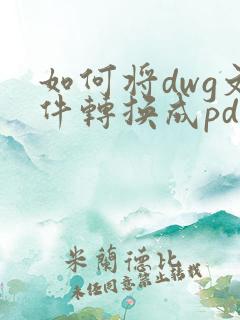 如何将dwg文
件轉换成pd
米蘭德比
未经同意禁止转载